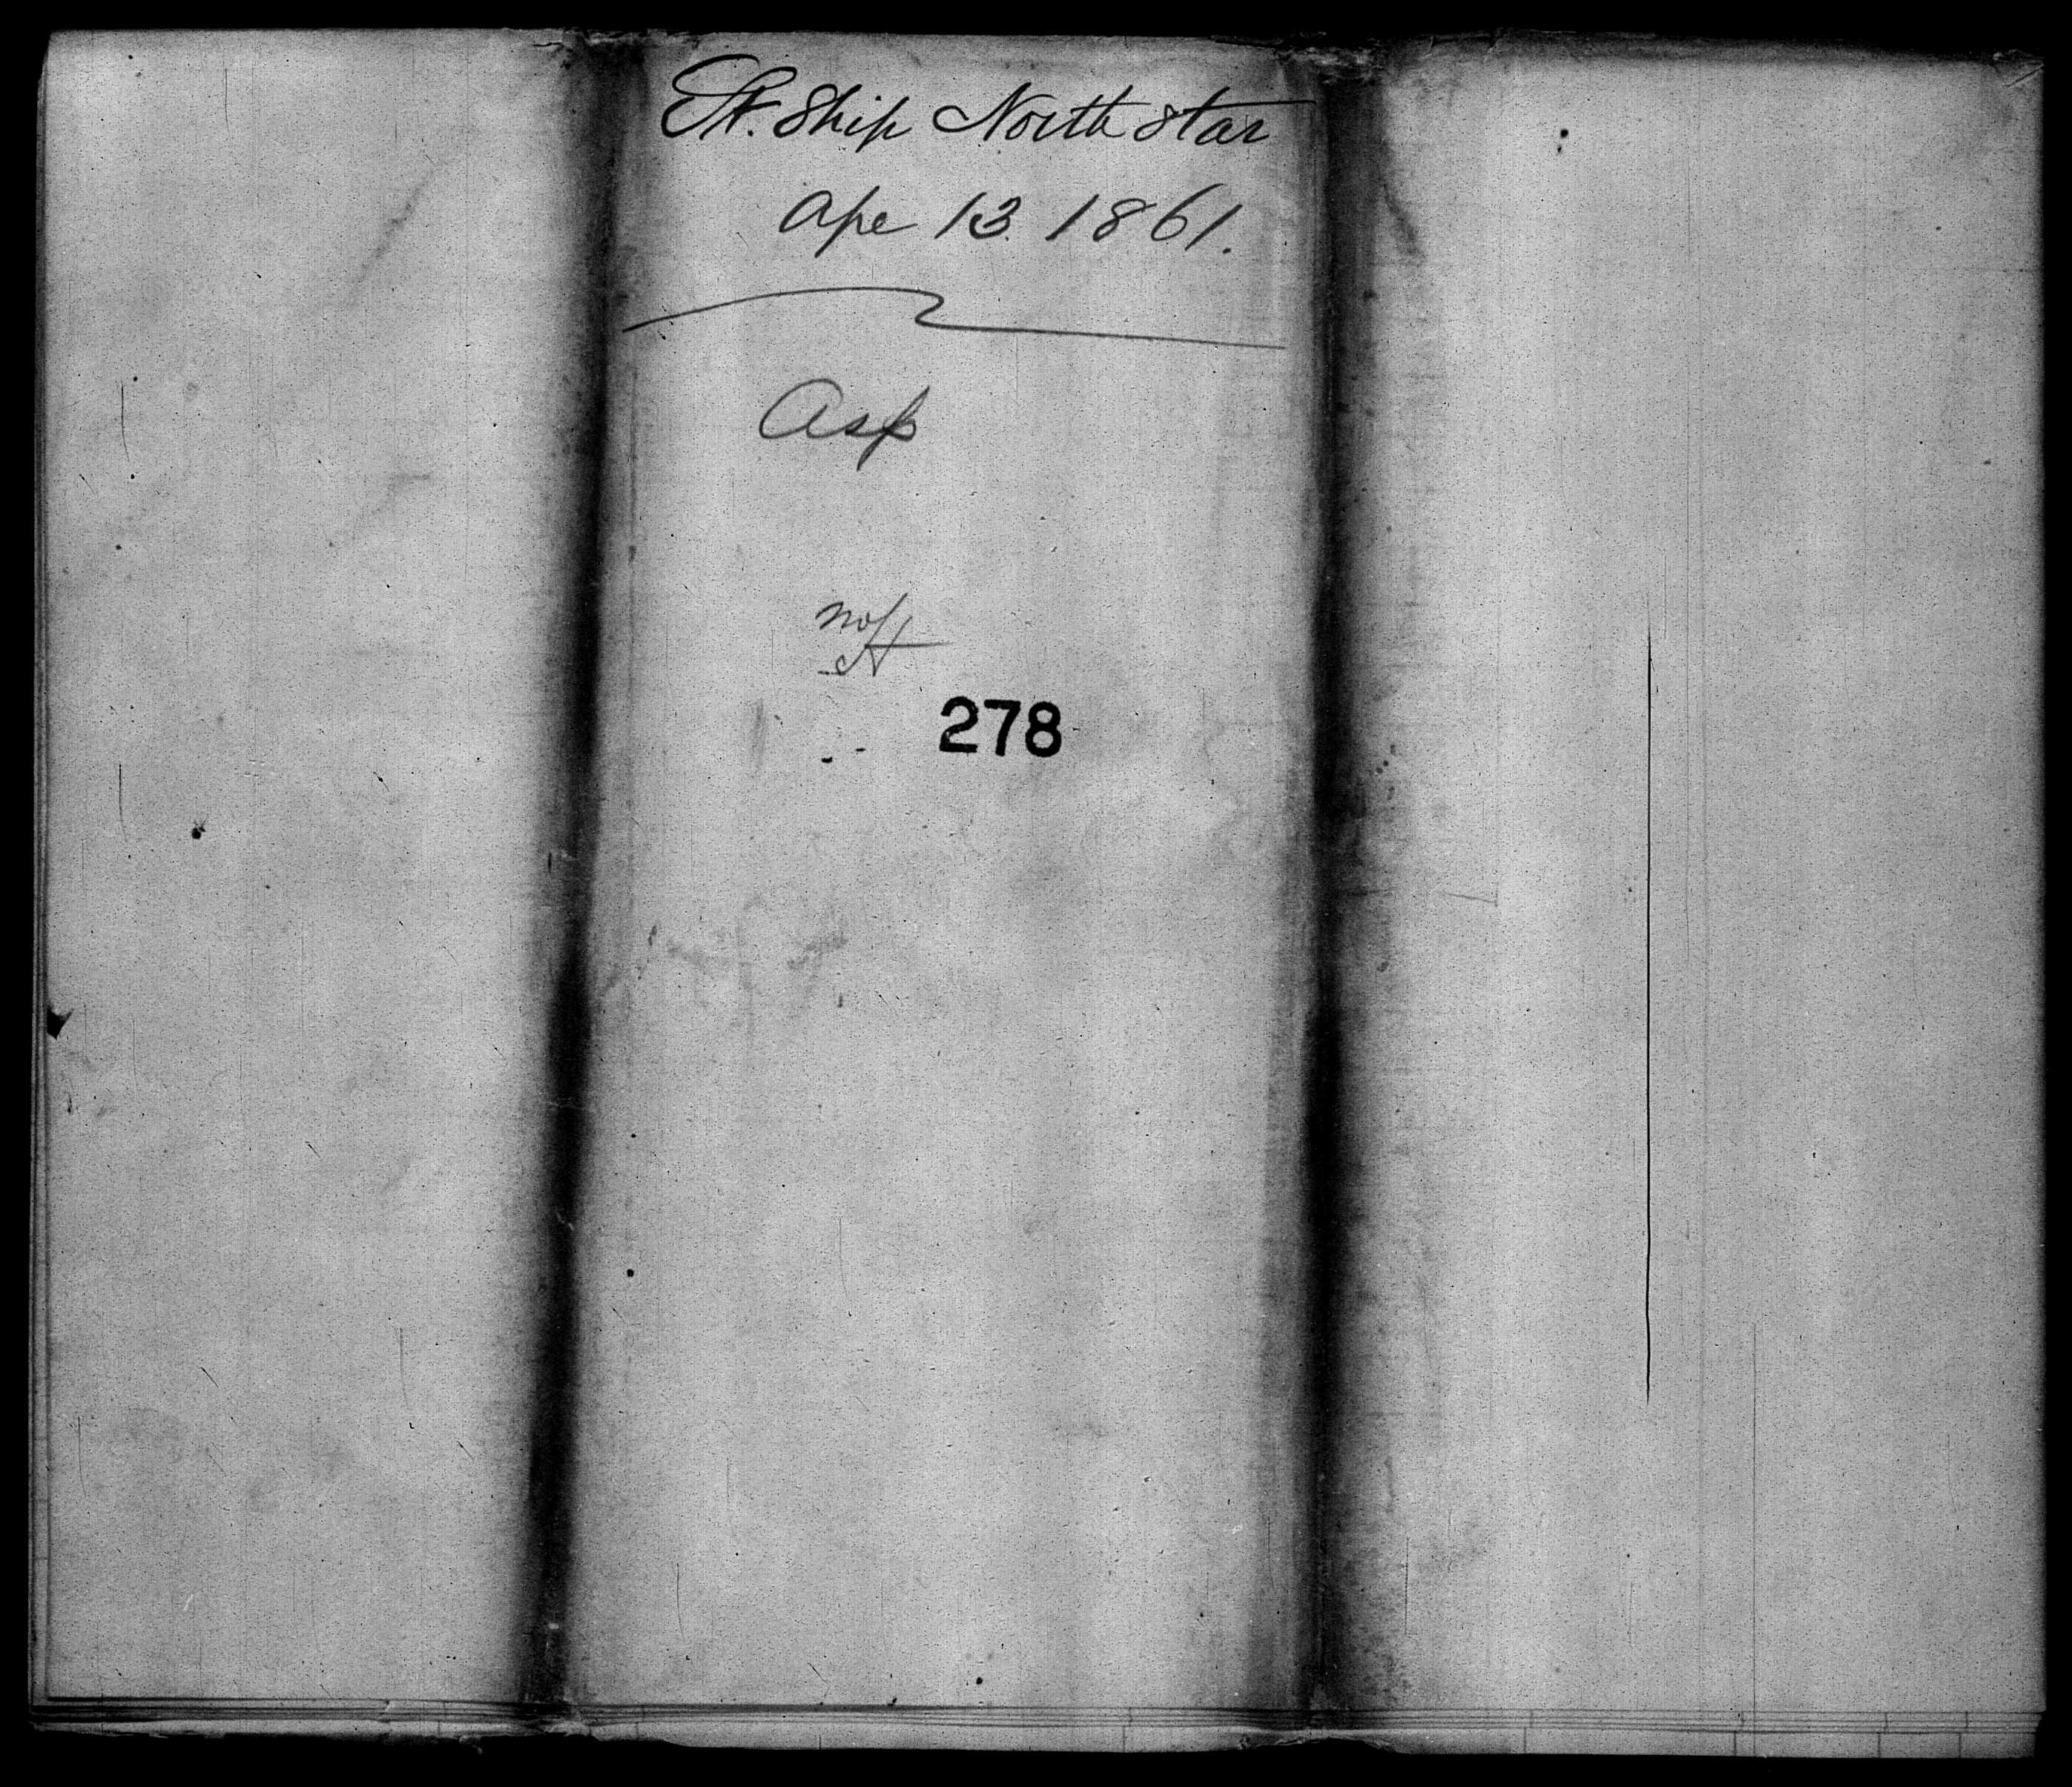 St. Ship North Star
Apr 13. 1861.
Asp
278